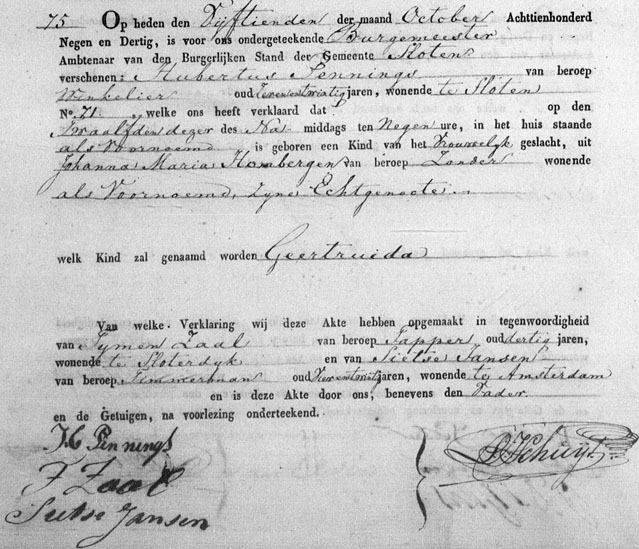 75 Op heden den Vyftienden der maand October Achttienhonderd
Negen en Dertig, is voor ons ondergeteekende Burgemeester
Ambtenaar van den Burgerlijken Stand der Gemeente Sloten
verschenen: Hubertus Pennings van beroep
Winkelier oud jaren, wonende te Sloten
No. 71 welke ons heeft verklaard dat op den
Twaalfden dezer des Na middags ten Negen ure, in het huis staande
als Voornoemd is geboren een Kind van het Vrouwelyk geslacht, uit
Johanna Maria Hombergen van beroep Zonder wonende
als Voornoemd, Zyne Echtgenoote
welk Kind zal genaamd worden Geertruida
Van welke Verklaring wij deze Akte hebben opgemaakt in tegenwoordigheid
van Tymen Zaal van beroep Tapper oud dertig jaren,
wonende te Sloterdyk en van Sietse Jansen
van beroep Timmerman oud jaren, wonende te Amsterdam
en is deze Akte door ons, benevens den Vader
en de Getuigen, na voorlezing onderteekend.
Pennings
Zaal
Sietse Jansen
Schuyt